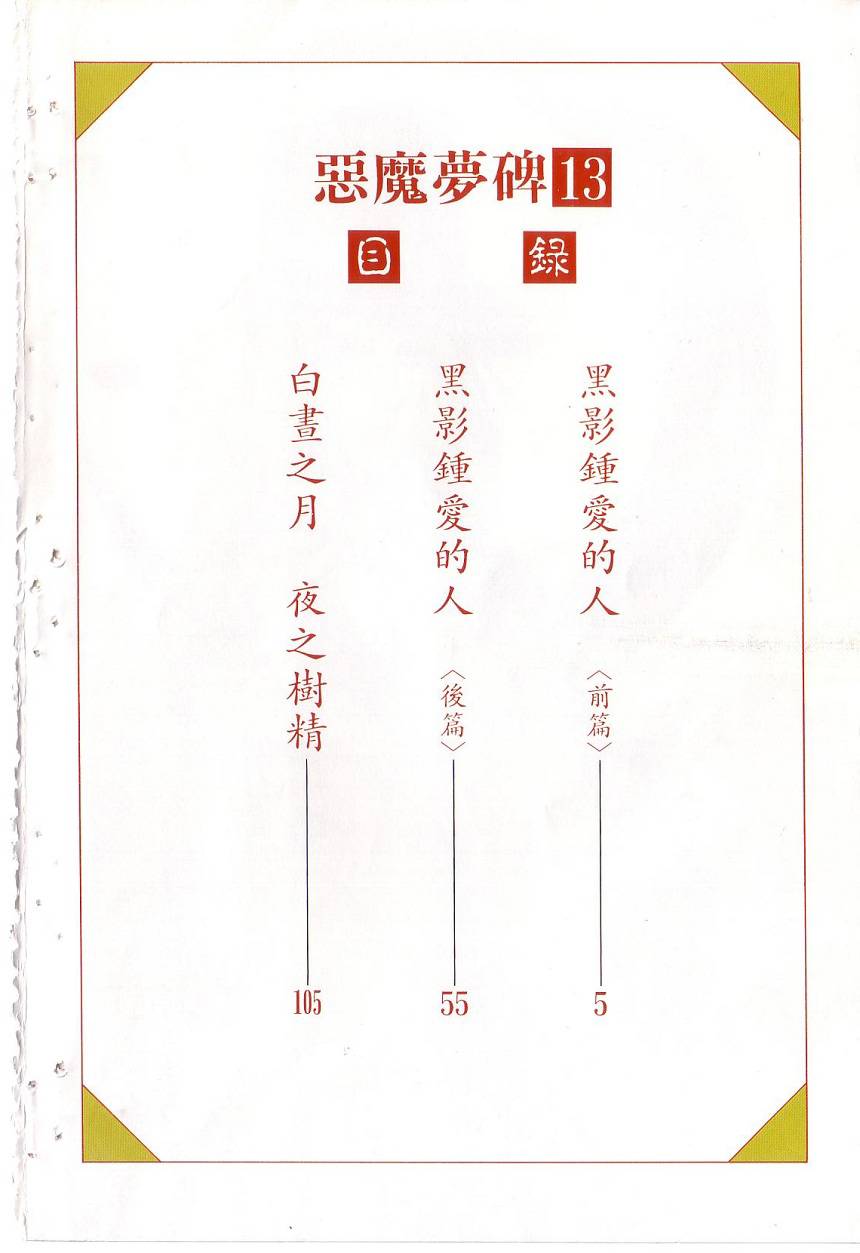 惡魔夢碑13
目錄
黑影鍾愛的人 〈前篇〉 5
黑影鍾愛的人 〈後篇〉 55
白晝之月 夜之樹精 105